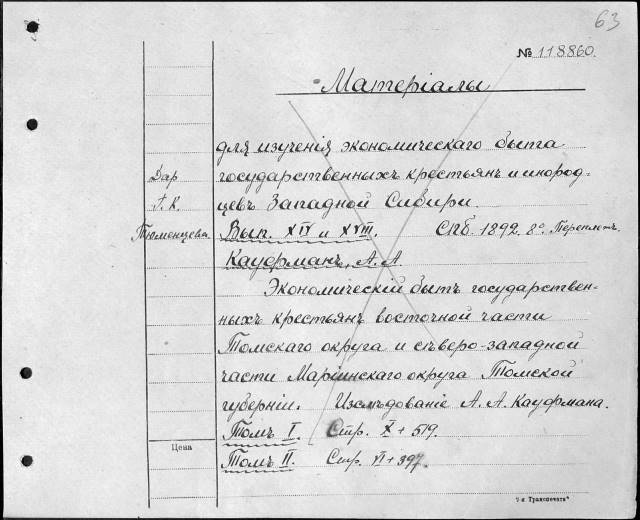 63
№ 118860.
Матеріалы
для изученія экономическаго быта
Дар государственныхъ крестьянъ и инород-
Г. К. цевъ Западной Сибири.
Тюменцева. Вып. XIV и XVIII. СПб. 1892. 8º. Переплетъ.
Кауфманъ, А. А.
Экономическій бытъ государствен-
ныхъ крестьянъ восточной части
Томскаго округа и сѣверо-западной
части Маріинскаго округа Томской
губерніи. Изслѣдованіе А. А. Кауфмана.
Томъ I. Стр. X + 519.
Цена
Томъ II. Стр. VI + 397.
7-я Транспечати"